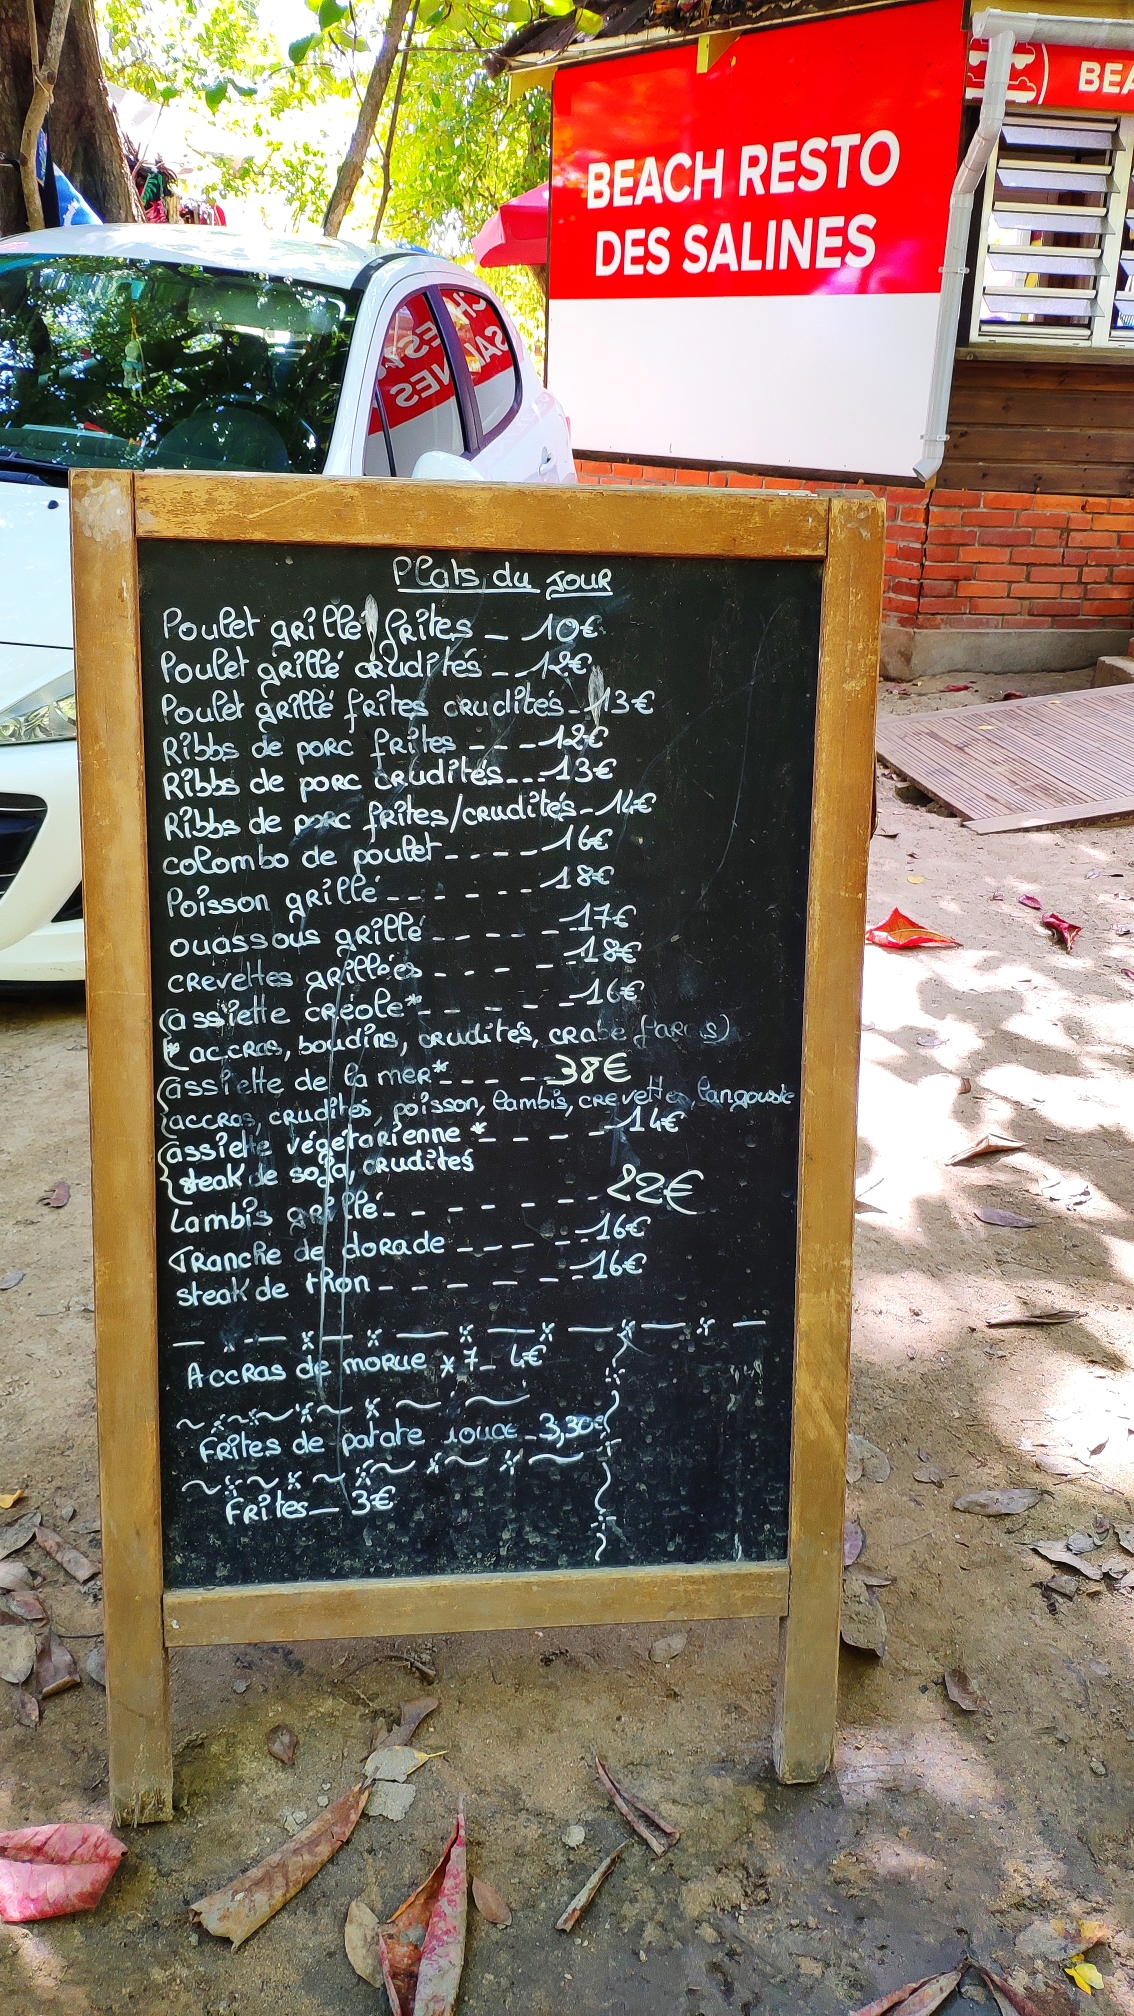 BEACH RESTO
DES SALINES
BEA
Plats du jour
Poulet grillé frites _ 10€
Poulet grillé crudités - 12€
Poulet grillé frites crudités - 13€
Ribbs de porc frites --- 12€
Ribbs de porc crudités --- 13€
Ribbs de porc frites/crudités - 14€
colombo de poulet ---- 16€
Poisson grillé ------ 18€
ouassous grillé ----- 17€
crevettes grillées ---- 18€
(assiette créole* ----- 16€
(* accras, boudins, crudités, crabe farcis)
(assiette de la mer* ---- 38€
accras, crudités, poisson, lambis, crevettes, langouste
(assiette végétarienne * ---- 14€
steak de soja, crudités
Lambis grillé ------ 22€
Tranche de dorade ----- 16€
steak de thon ------ 16€
Accras de morue x 7 _ 4€
frites de patate douce - 3,30€
frites _ 3€